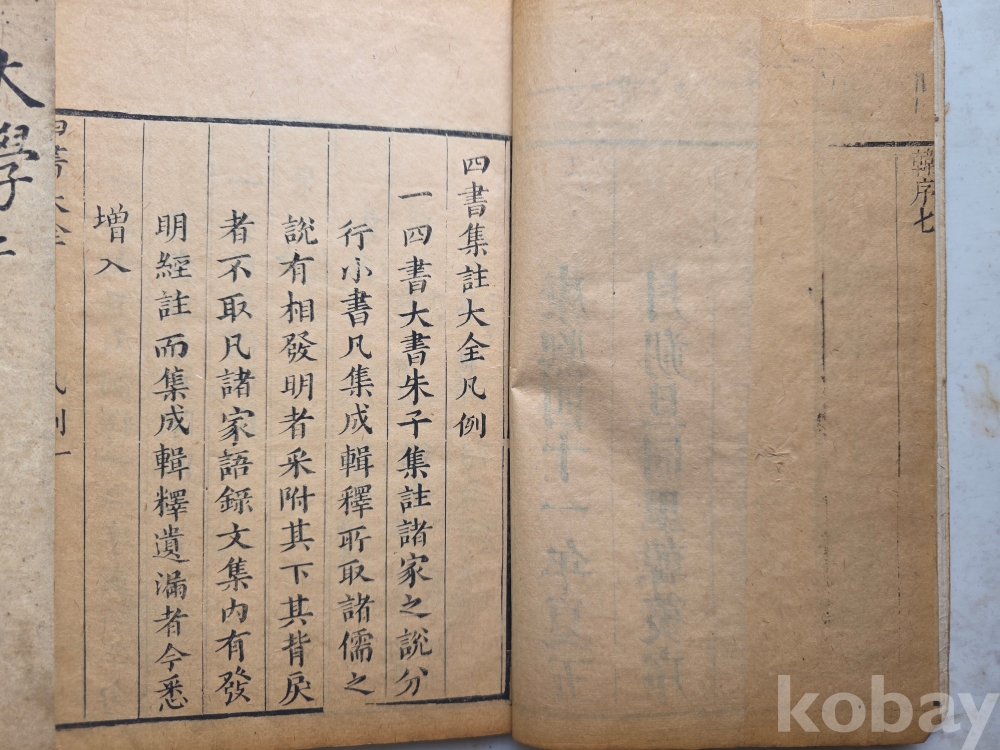 韓序七
四書集註大全凡例
一四書大書朱子集註諸家之說分
行小書凡集成輯釋所取諸儒之
說有相發明者采附其下其背戾
者不取凡諸家語錄文集內有發
明經註而集成輯釋遺漏者今悉
增入
四書大全 凡例一
大學
kobay